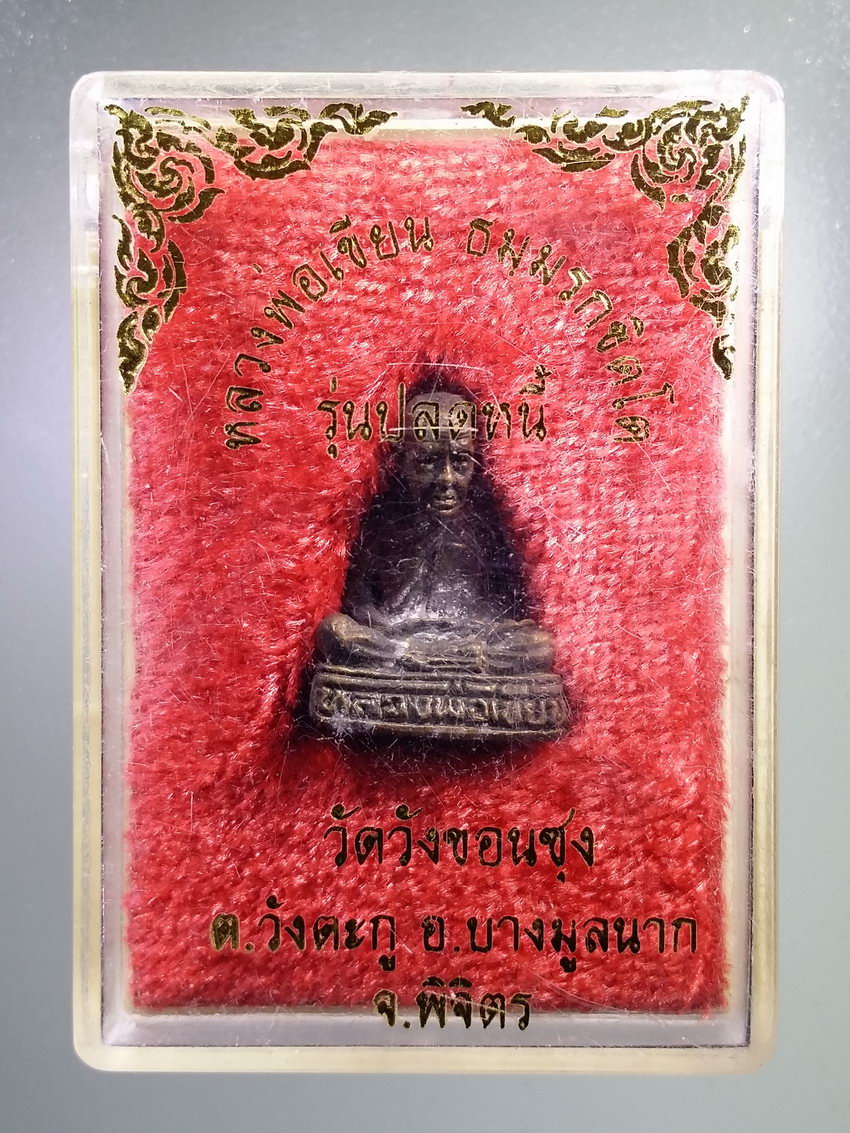 หลวงพ่อเขียน ธมฺมรกฺขิตฺโต
รุ่นปลดหนี้
หลวงพ่อเขียน
วัดวังขอนซุง
ต.วังตะกู อ.บางมูลนาก
จ.พิจิตร